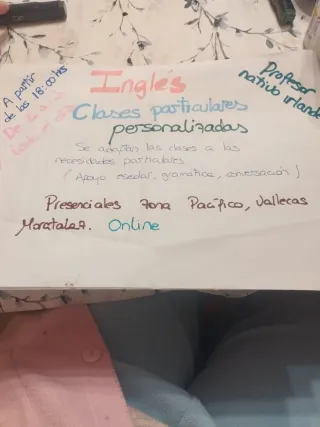 A partir
de las 18:00 hs
De L a
Inglés
Profesor
nativo irlandés
Clases particulares
personalizadas
Se adaptan las clases a las
necesidades particulares
(Apoyo escolar, gramática, conversación)
Presenciales zona Pacífico, Vallecas
Moratalaz. Online